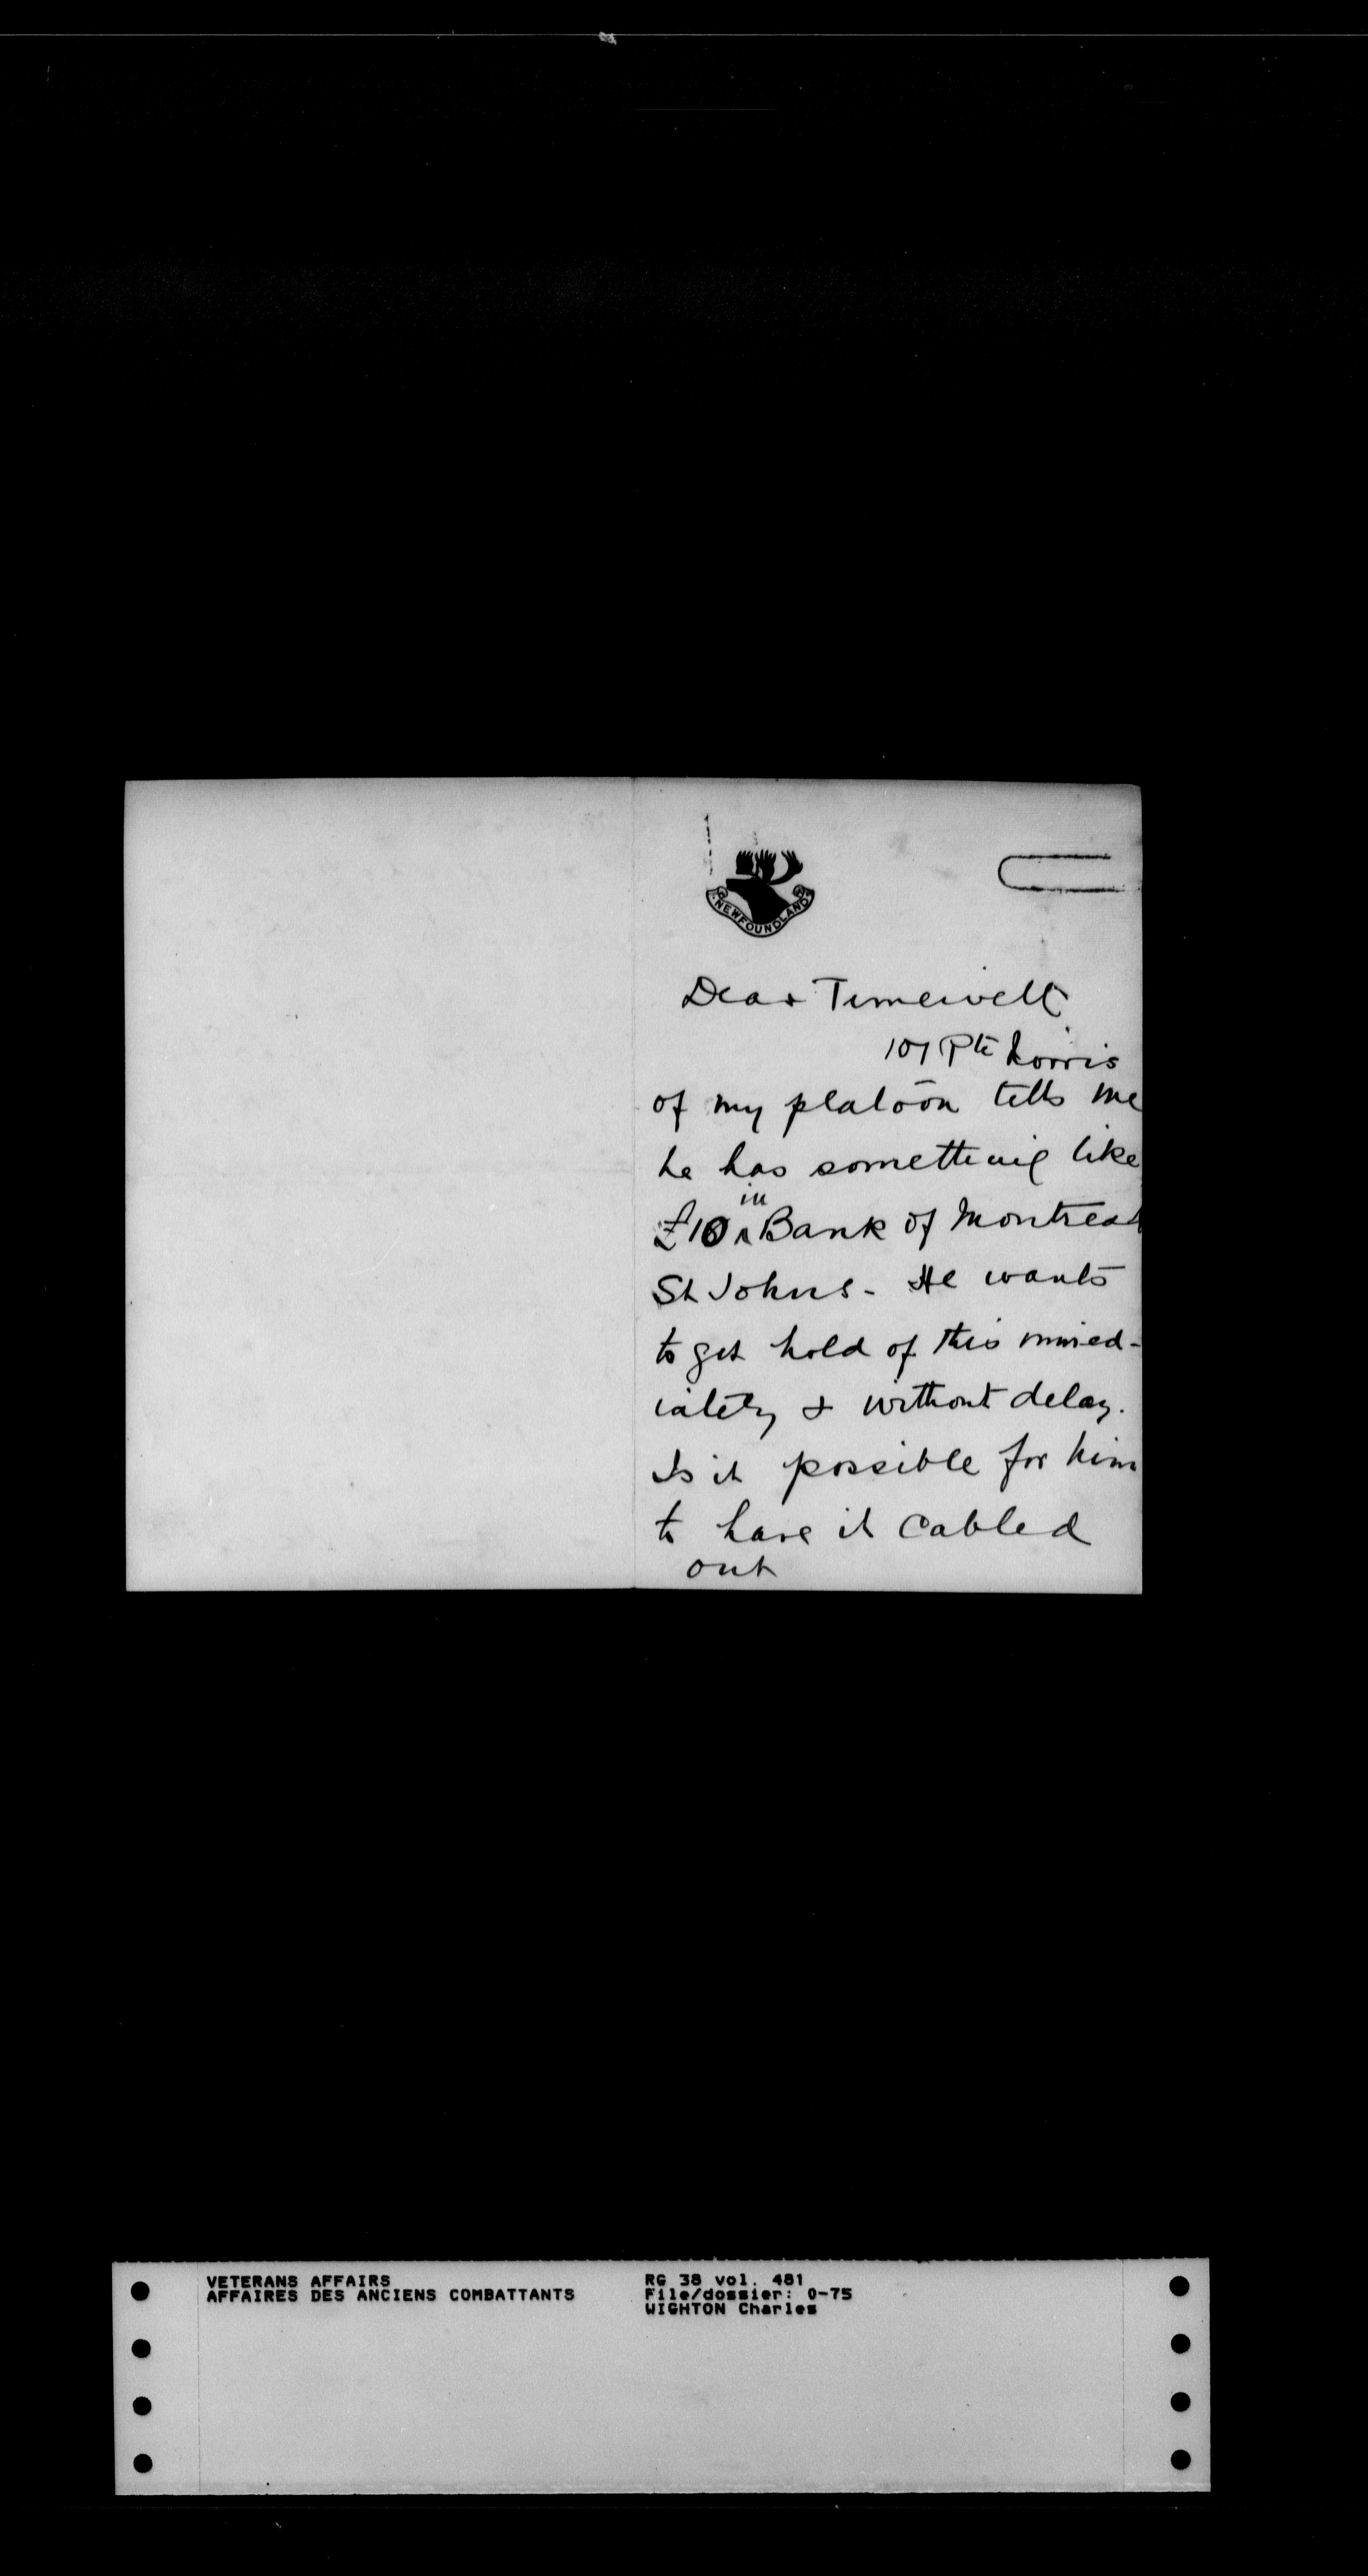 NEWFOUNDLAND
Dear Timewell
107 Pte Norris
of my platoon tells me
he has something like
£10 in Bank of Montreal
St Johns - He wants
to get hold of this immed-
iately & without delay.
Is it possible for him
to have it cabled
out
VETERANS AFFAIRS
AFFAIRES DES ANCIENS COMBATTANTS
RG 38 vol. 481
File/dossier: 0-75
WIGHTON Charles